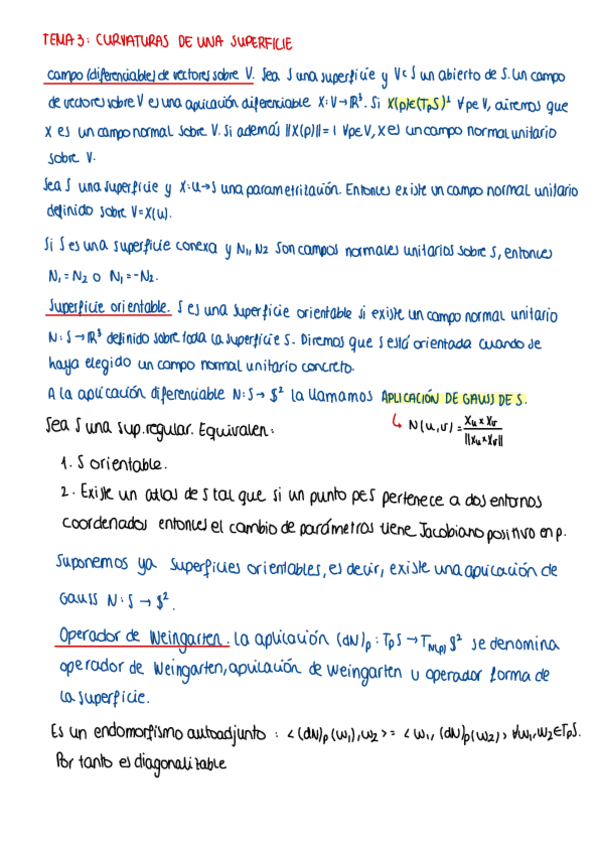 TEMA 3: CURVATURAS DE UNA SUPERFICIE
Campo (diferenciable) de vectores sobre V. Sea S una superficie y V⊂S un abierto de S. Un campo
de vectores sobre V es una aplicación diferenciable X: V→ℝ³. Si X(p)∈(TpS)⊥ ∀p∈V, diremos que
X es un campo normal sobre V. Si además ||X(p)||=1 ∀p∈V, X es un campo normal unitario
sobre V.
Sea S una superficie y X:U→S una parametrización. Entonces existe un campo normal unitario
definido sobre V=X(U).
Si S es una superficie conexa y N₁, N₂ son campos normales unitarios sobre S, entonces
N₁=N₂ o N₁=-N₂.
Superficie orientable. S es una superficie orientable si existe un campo normal unitario
N: S→ℝ³ definido sobre toda la superficie S. Diremos que S está orientada cuando se
haya elegido un campo normal unitario concreto.
A la aplicación diferenciable N: S→ S² la llamamos APLICACIÓN DE GAUSS DE S.
Sea S una sup. regular. Equivalen:
↳ N(u,v) = Xu × Xv / ||Xu × Xv||
1. S orientable.
2. Existe un atlas de S tal que si un punto p∈S pertenece a dos entornos
coordenados entonces el cambio de parámetros tiene Jacobiano positivo en p.
Suponemos ya superficies orientables, es decir, existe una aplicación de
Gauss N: S → S².
Operador de Weingarten. La aplicación (dN)p : TpS → TN(p) S² se denomina
operador de Weingarten, aplicación de Weingarten u operador forma de
la superficie.
Es un endomorfismo autoadjunto : <(dN)p(w₁), w₂> = <w₁, (dN)p(w₂)> ∀w₁, w₂∈TpS.
Por tanto es diagonalizable